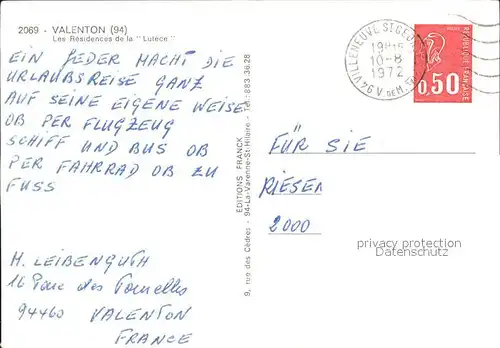 2069 - VALENTON (94)
Les Résidences de la "Lutèce"
EIN JEDER MACHT DIE
URLAUBSREISE GANZ
AUF SEINE EIGENE WEISE
OB PER FLUGZEUG
SCHIFF UND BUS OB
PER FAHRRAD OB ZU
FUSS
M. LEIBENGUTH
16 des Tournelles
94460 VALENTON
FRANCE
EDITIONS FRANCK
9, rue des Cèdres - 94-La-Varenne-St-Hilaire - Tel: 883.36.28
VILLENEUVE ST GEORGES
10-8
1972
94 V. DE M.
0,50
RÉPUBLIQUE FRANÇAISE
FÜR SIE
RIESER
2000
privacy protection
Datenschutz